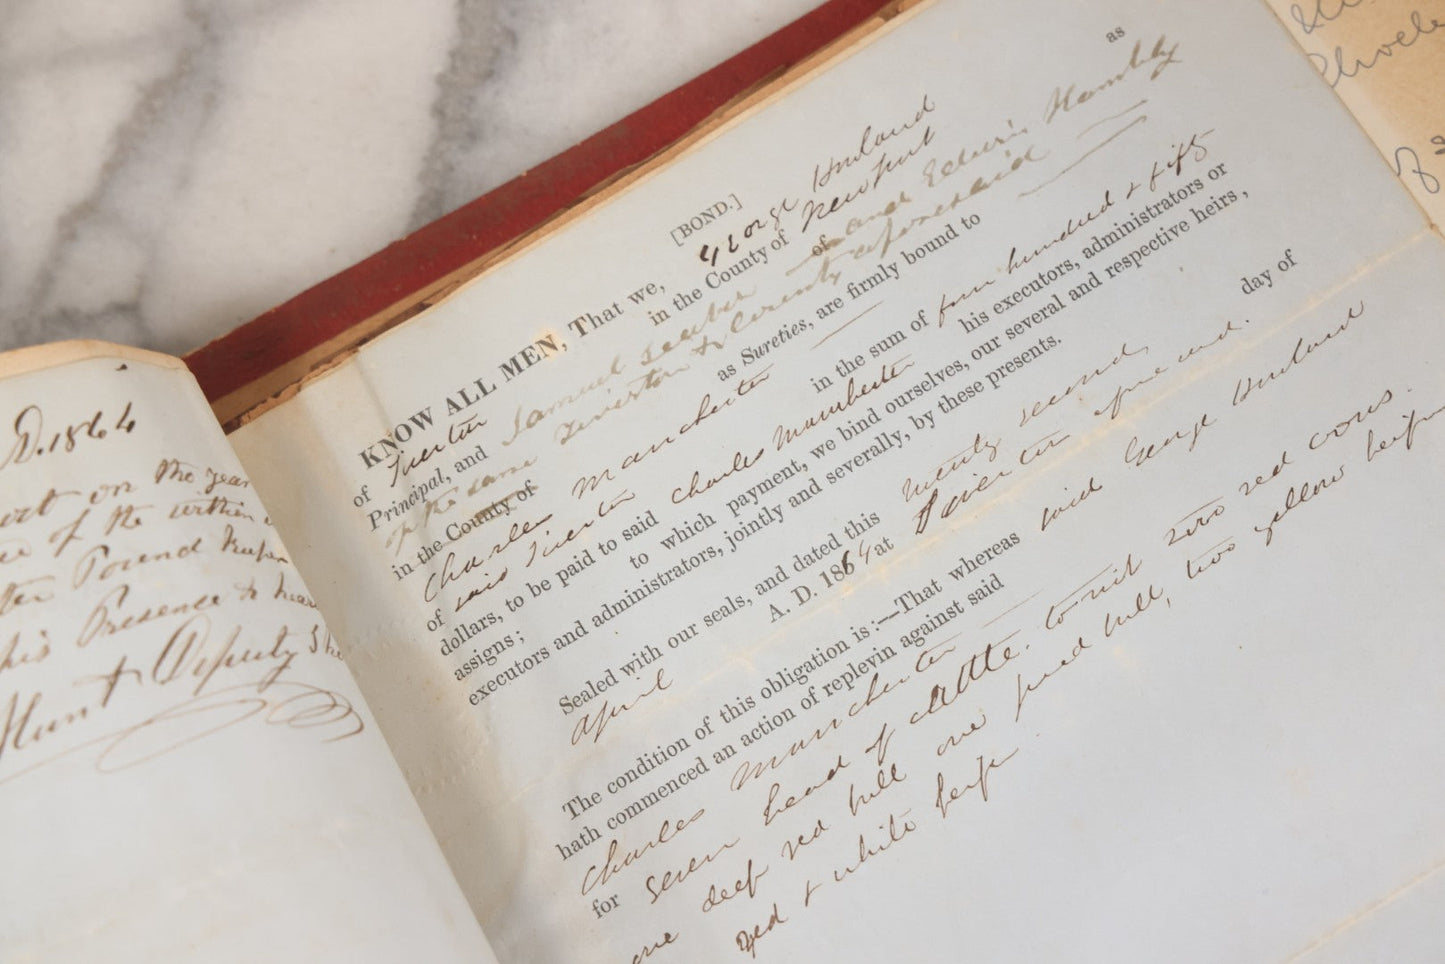 D. 1864
Court on the year
of the within
Pound Keeper
his Presence & hear
Hunt Deputy She
[BOND.]
KNOW ALL MEN, That we, George Howland
of Tiverton in the County of Newport as
Principal, and Samuel Seabury and Edwin Hambly
of the same Tiverton & County aforesaid
in the County of of
as Sureties, are firmly bound to
Charles Manchester
of said Tiverton in the sum of four hundred & fifty
dollars, to be paid to said Charles Manchester his executors, administrators or
assigns; to which payment, we bind ourselves, our several and respective heirs,
executors and administrators, jointly and severally, by these presents.
Sealed with our seals, and dated this twenty second day of
April A. D. 1864 at Tiverton aforesaid.
The condition of this obligation is:—That whereas said George Howland
hath commenced an action of replevin against said
Charles Manchester
for seven head of cattle. to wit two red cows.
one deep red bull one pied bull, two yellow heifers
one red & white heifer.